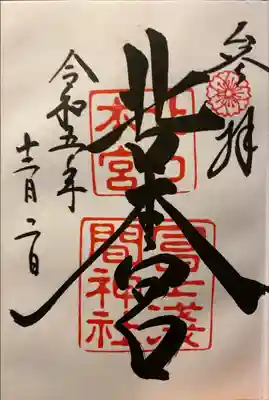 参拝
北口本宮
北口本宮
冨士浅間神社
令和五年
十二月二日